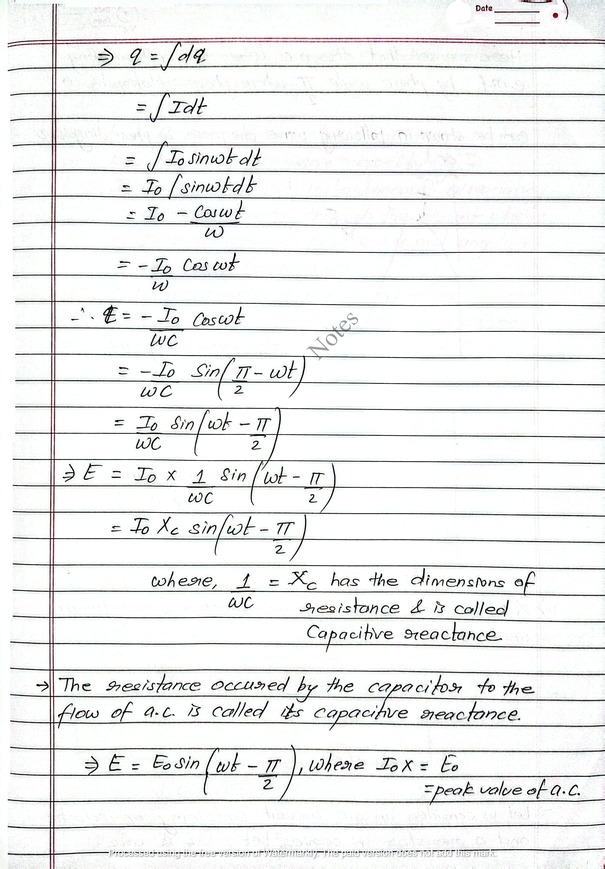 Date
⇒ q = ∫dq
= ∫Idt
= ∫I₀ sinωt dt
= I₀ ∫sinωt dt
= I₀ - Cosωt / ω
= - I₀/ω Cos ωt
∴ E = - I₀/ωC Cosωt
Notes
= -I₀/ωC Sin(π/2 - ωt)
= I₀/ωC Sin(ωt - π/2)
⇒ E = I₀ × 1/ωC Sin(ωt - π/2)
= I₀ Xc sin(ωt - π/2)
where, 1/ωC = Xc has the dimensions of
resistance & is called
Capacitive reactance
→ The resistance occured by the capacitor to the
flow of a.c. is called its capacitive reactance.
⇒ E = E₀ sin(ωt - π/2), where I₀X = E₀
= peak value of a.c.
Processed using the free version of Watermarkly. The paid version does not add this mark.